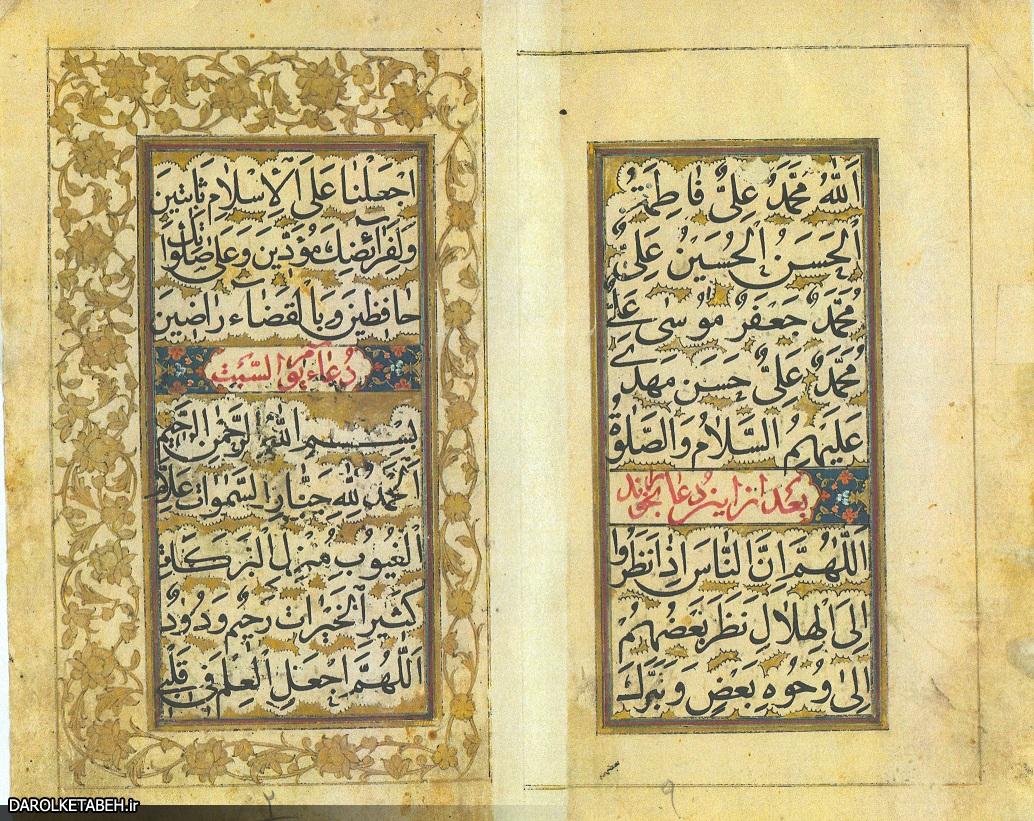 اَللهُ مُحَمَّدٌ عَلِيٌّ فَاطِمَةُ
اَلْحَسَنُ الْحُسَيْنُ عَلِيٌّ
مُحَمَّدٌ جَعْفَرٌ مُوسٰى عَلِيٌّ
مُحَمَّدٌ عَلِيٌّ حَسَن مَهدِي
عَلَيْهِمُ السَّلَامُ وَالصَّلٰوةُ
بَعْد از این دُعا بخوٰاند
اَللّٰهُمَّ اِنَّ النَّاسَ اِذَا نَظَرُوا
اِلَى الْهِلَالِ نَظَرَ بَعْضُهُمْ
اِلٰى وُجُوهِ بَعْضٍ وَتَبَرَّكَ
اجْعَلْنَا عَلَى الْاِسْلَامِ ثَابِتِينَ
وَلِفَرَآئِضِكَ مُؤَدِّينَ وَعَلٰى صَلَوَاتِكَ
حَافِظِينَ وَبِالْقَضَاءِ رَاضِينَ
دُعَاءِ يَوْمِ السَّبْتِ
بِسْمِ اللهِ الرَّحْمٰنِ الرَّحِيمِ
اَلْحَمْدُ لِلّٰهِ جَبَّارِ السَّمٰوَاتِ عَلَّامِ
الْغُيُوبِ مُنْزِلِ الْبَرَكَاتِ
كَثِيرِ الْخَيْرَاتِ رَحِيمٌ وَدُودٌ
اَللّٰهُمَّ اجْعَلِ الْعِلْمَ فِي قَلْبِي
۹
۲
DAROLKETABEH.ir